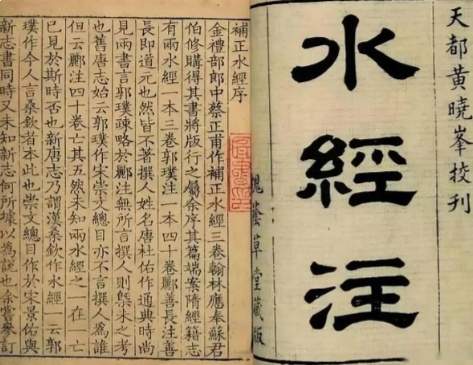 天都黃曉峯校刊
水經注
槐蔭草堂藏版
補正水經序
金禮部郎中蔡正甫作補正水經三卷翰林應奉蘇君
伯修購得其書將版行之屬余序其篇端案隋經籍志
有兩水經一本三卷郭璞注一本四十卷酈善長注善
長即道元也然皆不著撰人姓名唐杜佑作通典時尚
見兩書言郭璞疎略於酈注無所言撰人則槩未之考
也舊唐志始云郭璞作宋崇文總目亦不言撰人為誰
但云酈注四十卷亡其五然未知兩水經之一在一亡
已見於斯時否也新唐志乃謂漢桑欽作水經一云郭
璞作今人言桑欽者本此也崇文總目作於宋景佑與
新志書同時又未知新志何所據以為說也余嘗參訂